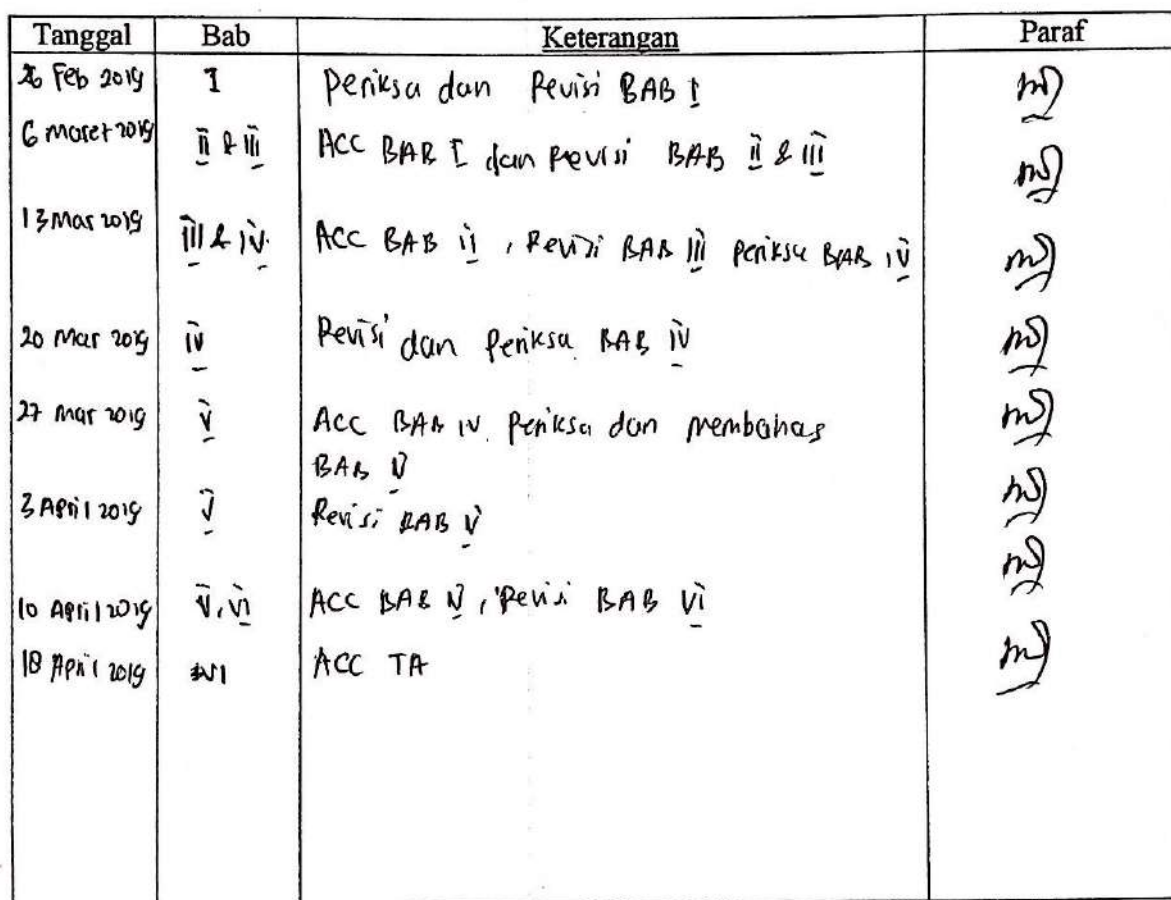 Tanggal Bab Keterangan Paraf
26 Feb 2019 I Periksa dan Revisi BAB I
6 maret 2019 II & III ACC BAB I dan Revisi BAB II & III
13 Mar 2019 III & IV ACC BAB II, Revisi BAB III Periksa BAB IV
20 Mar 2019 IV Revisi dan Periksa BAB IV
27 Mar 2019 V ACC BAB IV. Periksa dan membahas
BAB V
3 April 2019 V Revisi BAB V
10 April 2019 V, VI ACC BAB V, Revisi BAB VI
18 April 2019 VI ACC TA